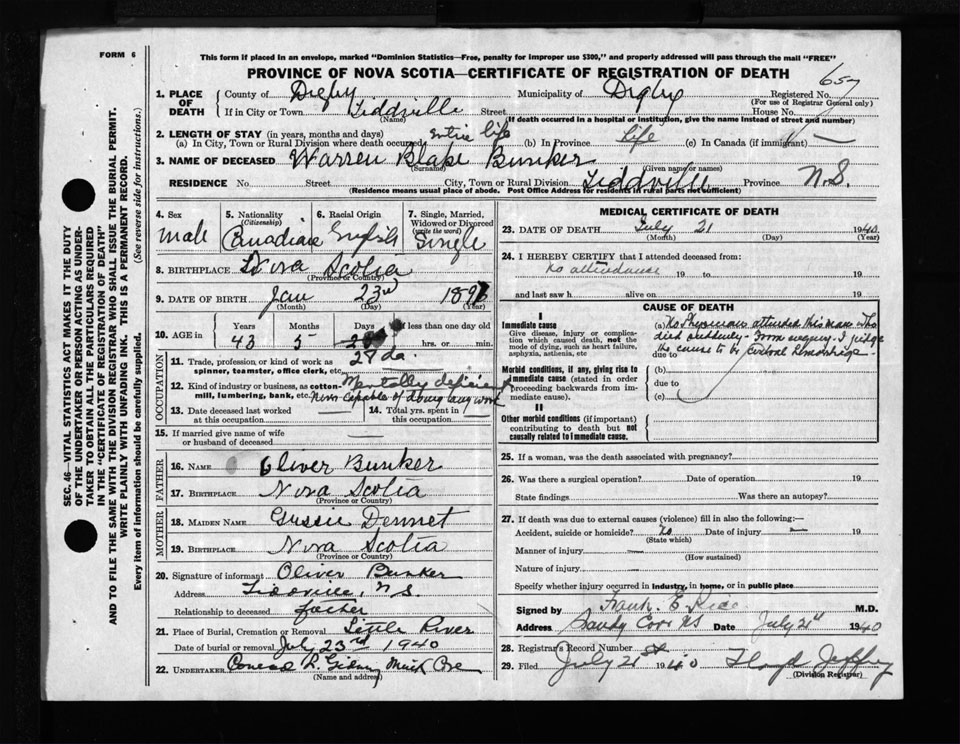 FORM 6
This form if placed in an envelope, marked "Dominion Statistics—Free, penalty for improper use $300," and properly addressed will pass through the mail "FREE"
PROVINCE OF NOVA SCOTIA—CERTIFICATE OF REGISTRATION OF DEATH
657
1. PLACE OF DEATH County of Digby Municipality of Digby Registered No.
(For use of Registrar General only)
If in City or Town Tiddville Street House No.
(Name) (If death occurred in a hospital or institution, give the name instead of street and number)
2. LENGTH OF STAY (in years, months and days)
(a) In City, Town or Rural Division where death occurred entire life (b) In Province life (c) In Canada (if immigrant) —
3. NAME OF DECEASED Warren Blake Bunker
(Surname) (Given name or names)
RESIDENCE No. Street City, Town or Rural Division Tiddville Province N.S.
(Residence means usual place of abode. Post Office Address for residents in rural parts not sufficient)
4. Sex male
5. Nationality (Citizenship) Canadian
6. Racial Origin English
7. Single, Married, Widowed or Divorced (write the word) Single
8. BIRTHPLACE Nova Scotia
(Province or Country)
9. DATE OF BIRTH Jan 23rd 1897
(Month) (Day) (Year)
10. AGE in Years 43 Months 5 Days 28 If less than one day old hrs. or min.
28 da.
OCCUPATION
11. Trade, profession or kind of work as spinner, teamster, office clerk, etc. —
12. Kind of industry or business, as cotton-mill, lumbering, bank, etc. Mentally deficient
never capable of doing any work
13. Date deceased last worked at this occupation —
14. Total yrs. spent in this occupation —
15. If married give name of wife or husband of deceased —
FATHER
16. NAME Oliver Bunker
17. BIRTHPLACE Nova Scotia
(Province or Country)
MOTHER
18. MAIDEN NAME Gussie Dennet
19. BIRTHPLACE Nova Scotia
(Province or Country)
20. Signature of informant Oliver Bunker
Address Tiddville, N.S.
Relationship to deceased father
21. Place of Burial, Cremation or Removal Little River
Date of burial or removal July 23rd 1940
22. UNDERTAKER Conrad R.
(Name and address)
MEDICAL CERTIFICATE OF DEATH
23. DATE OF DEATH July 21 1940
(Month) (Day) (Year)
24. I HEREBY CERTIFY that I attended deceased from:
no attendance 19 to 19
and last saw h alive on 19
CAUSE OF DEATH
I
Immediate cause
Give disease, injury or complication which caused death, not the mode of dying, such as heart failure, asphyxia, asthenia, etc
(a) No Physician attended this man. Who
died suddenly - from inquiry - I judge
due to the cause to be cerebral Hemorrhage -
Morbid conditions, if any, giving rise to immediate cause (stated in order proceeding backwards from immediate cause).
(b)
due to
(c)
II
Other morbid conditions (if important) contributing to death but not causally related to immediate cause.
25. If a woman, was the death associated with pregnancy?
26. Was there a surgical operation? Date of operation 19
State findings Was there an autopsy?
27. If death was due to external causes (violence) fill in also the following:—
Accident, suicide or homicide? No Date of injury — 19
(State which)
Manner of injury —
(How sustained)
Nature of injury —
Specify whether injury occurred in industry, in home, or in public place
Signed by Frank E Rice M.D.
Address Sandy Cove NS Date July 21st 1940
28. Registrar's Record Number
29. Filed July 21st 1940 Floyd
(Division Registrar)
SEC. 46—VITAL STATISTICS ACT MAKES IT THE DUTY
OF THE UNDERTAKER OR PERSON ACTING AS UNDER-
TAKER TO OBTAIN ALL THE PARTICULARS REQUIRED
IN THE "CERTIFICATE OF REGISTRATION OF DEATH"
AND TO FILE THE SAME WITH THE DIVISION REGISTRAR WHO SHALL ISSUE THE BURIAL PERMIT.
WRITE PLAINLY WITH UNFADING INK. THIS IS A PERMANENT RECORD.
Every item of information should be carefully supplied. (See reverse side for instructions.)